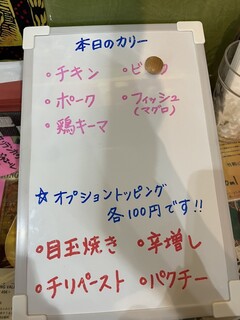 本日のカリー
・チキン
・ポーク ・フィッシュ
(マグロ)
・鶏キーマ
☆ オプショントッピング
各100円です!!
・目玉焼き ・辛増し
・チリペースト ・パクチー